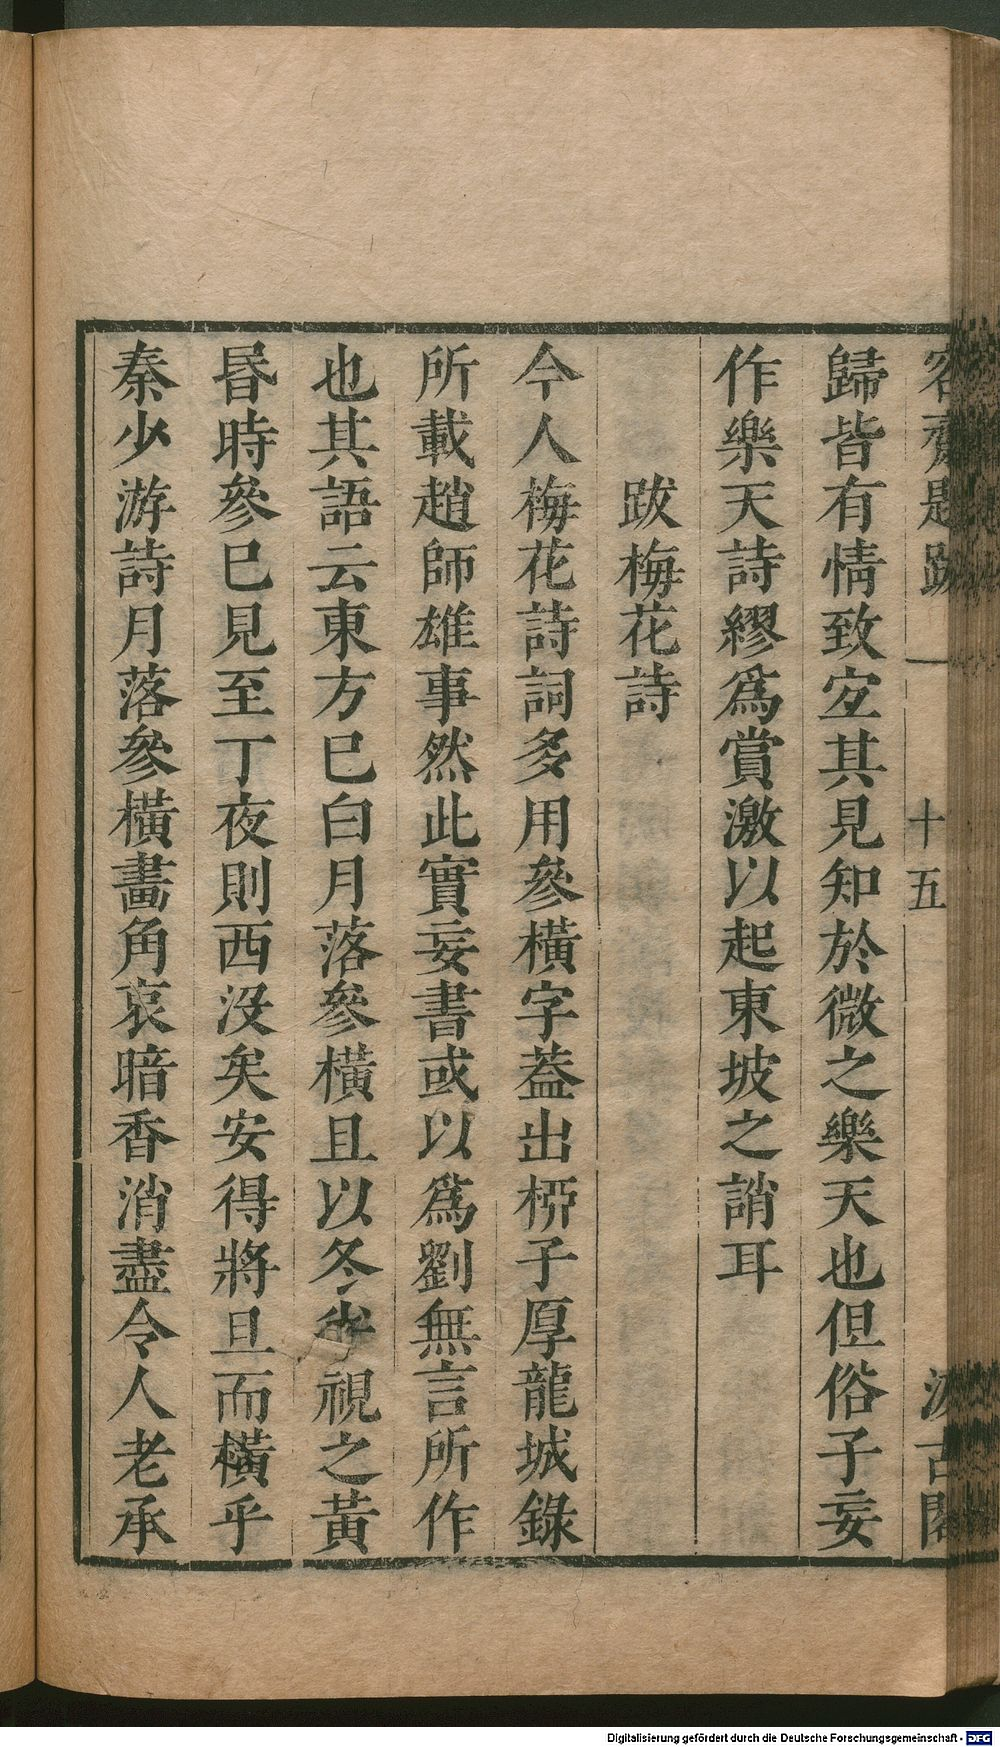 容齋題跋 一 十五 汲古閣
歸皆有情致宜其見知於微之樂天也但俗子妄
作樂天詩繆爲賞激以起東坡之誚耳
跋梅花詩
今人梅花詩詞多用參橫字葢出桺子厚龍城錄
所載趙師雄事然此實妄書或以爲劉無言所作
也其語云東方巳白月落參橫且以冬半視之黃
昬時參巳見至丁夜則西没矣安得將旦而橫乎
秦少游詩月落參橫畵角哀暗香消盡令人老承
Digitalisierung gefördert durch die Deutsche Forschungsgemeinschaft - DFG